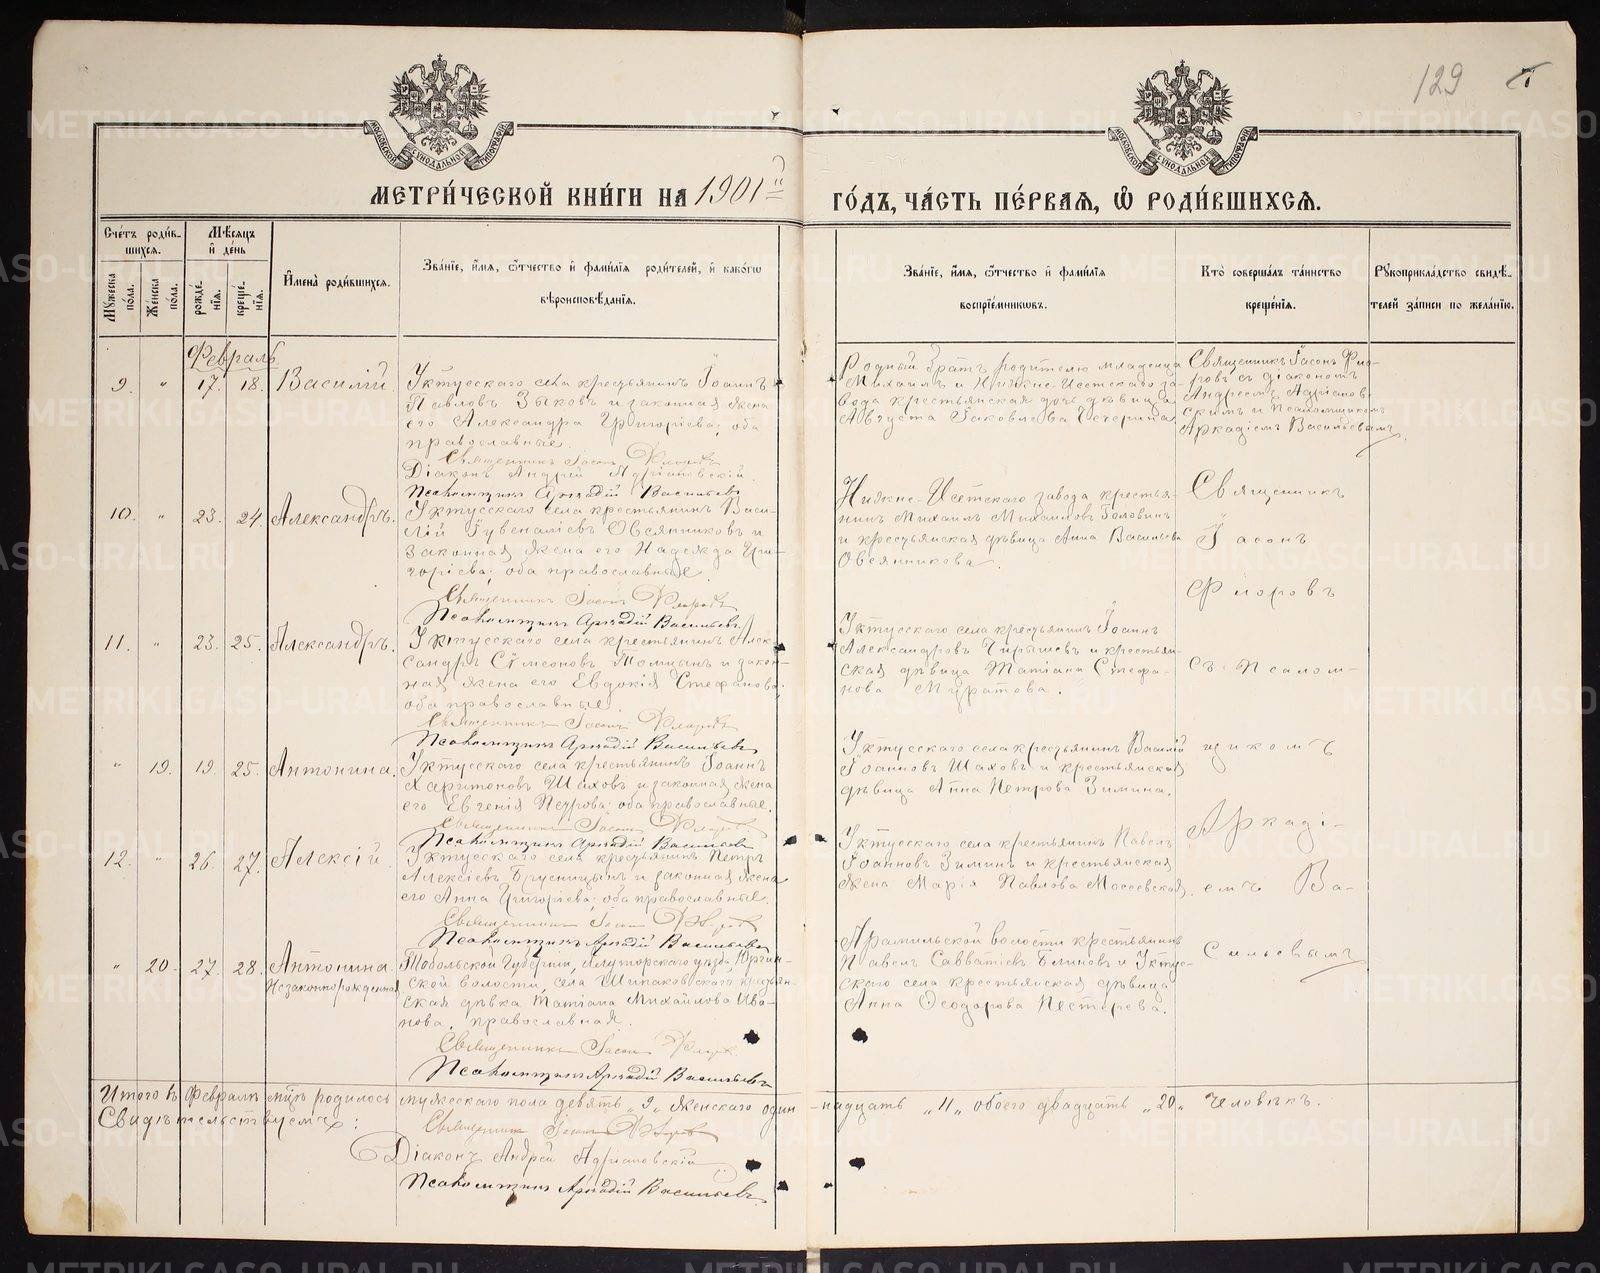 129
МЕТРИ́ЧЕСКОЙ КНИ́ГИ НА 1901й ГО́ДЪ, ЧА́СТЬ ПЕ́РВАЯ, Ѿ РОДИ́ВШИХСЯ.
Сче́тъ роди́в-
шихся.
Мѣ́сяцъ
и де́нь
Мꙋ́жеска по́ла.
Же́нска по́ла.
рожде́-
нїя.
креще́-
нїя.
Имена̀ роди́вшихся.
Зва́нїе, и́мя, ѻ҆́тчество и фами́лїя роди́телей, и како́гѡ
вѣроисповѣ́данїя.
Зва́нїе, и́мя, ѻ҆́тчество и фами́лїя
воспрїе́мниковъ.
Кто̀ соверша́лъ та́инство
креще́нїя.
Рꙋкоприкла́дство свидѣ́-
телей за́писи по жела́нїю.
Февраль
9. " 17. 18. Василій.
Уктусскаго села крестьянинъ Іоаннъ
Павловъ Зыковъ и законная жена
его Александра Григоріева; оба
православные.
Священникъ Іасонъ Флоровъ
Діаконъ Андрей Адріановскій.
Псаломщикъ Аркадій Васильевъ
Родный братъ родителю младенца
Михаилъ и Нижне-Исетскаго за-
вода крестьянская дочь дѣвица
Августа Іаковлева Чечерина.
Священникъ Іасонъ Фло-
ровъ съ діакономъ
Андреемъ Адріанов-
скимъ и Псаломщикомъ
Аркадіемъ Васильевымъ.
10. " 23. 24. Александръ.
Уктусскаго села крестьянинъ Васи-
лій Іувеналіевъ Овсянниковъ и
законная жена его Надежда Гри-
горіева; оба православные.
Священникъ Іасонъ Флоровъ
Псаломщикъ Аркадій Васильевъ
Нижне-Исетскаго завода крестья-
нинъ Михаилъ Михаиловъ Головинъ
и крестьянская дѣвица Анна Васильева
Овсянникова.
Священникъ
Іасонъ
Флоровъ
11. " 23. 25. Александръ.
Уктусскаго села крестьянинъ Алек-
сандръ Сѵмеоновъ Томцынъ и закон-
ная жена его Евдокія Стефанова;
оба православные.
Священникъ Іасонъ Флоровъ
Псаломщикъ Аркадій Васильевъ
Уктусскаго села крестьянинъ Іоаннъ
Александровъ Чирышевъ и крестьян-
ская дѣвица Татіана Стефа-
нова Муратова.
съ Псалом-
" 19. 19. 25. Антонина.
Уктусскаго села крестьянинъ Іоаннъ
Харитоновъ Шаховъ и законная жена
его Евгенія Петрова; оба православные.
Священникъ Іасонъ Флоровъ
Псаломщикъ Аркадій Васильевъ
Уктусскаго села крестьянинъ Василій
Іоанновъ Шаховъ и крестьянская
дѣвица Анна Петрова Зимина.
щикомъ
Аркаді-
12. " 26. 27. Алексій.
Уктусскаго села крестьянинъ Петръ
Алексіевъ Брусницынъ и законная жена
его Анна Григоріева; оба православные.
Священникъ Іасонъ Флоровъ
Псаломщикъ Аркадій Васильевъ
Уктусскаго села крестьянинъ Павелъ
Іоанновъ Зиминъ и крестьянская
жена Марія Павлова Мосоевская.
емъ Ва-
" 20. 27. 28. Антонина
Незаконнорожденная
Тобольской Губерніи, Ялуторскаго уѣзда Юргин-
ской волости, села Шипаковскаго крестьян-
ская дѣвка Татіана Михаилова Ива-
нова, православная.
Священникъ Іасонъ Флоровъ
Псаломщикъ Аркадій Васильевъ
Арамильской волости крестьянинъ
Павелъ Савватіевъ Блиновъ и Уктус-
скаго села крестьянская дѣвица
Анна Ѳеодорова Нестерева.
сильевымъ
Итого въ Февралѣ мцѣ родилось мужескаго пола девять „9„ женскаго один-надцать „11„ обоего двадцать „20„ человѣкъ.
Свидѣтельствуемъ:
Священникъ Іасонъ Флоровъ
Діаконъ Андрей Адріановскій
Псаломщикъ Аркадій Васильевъ
METRIKI.GASO-URAL.RU